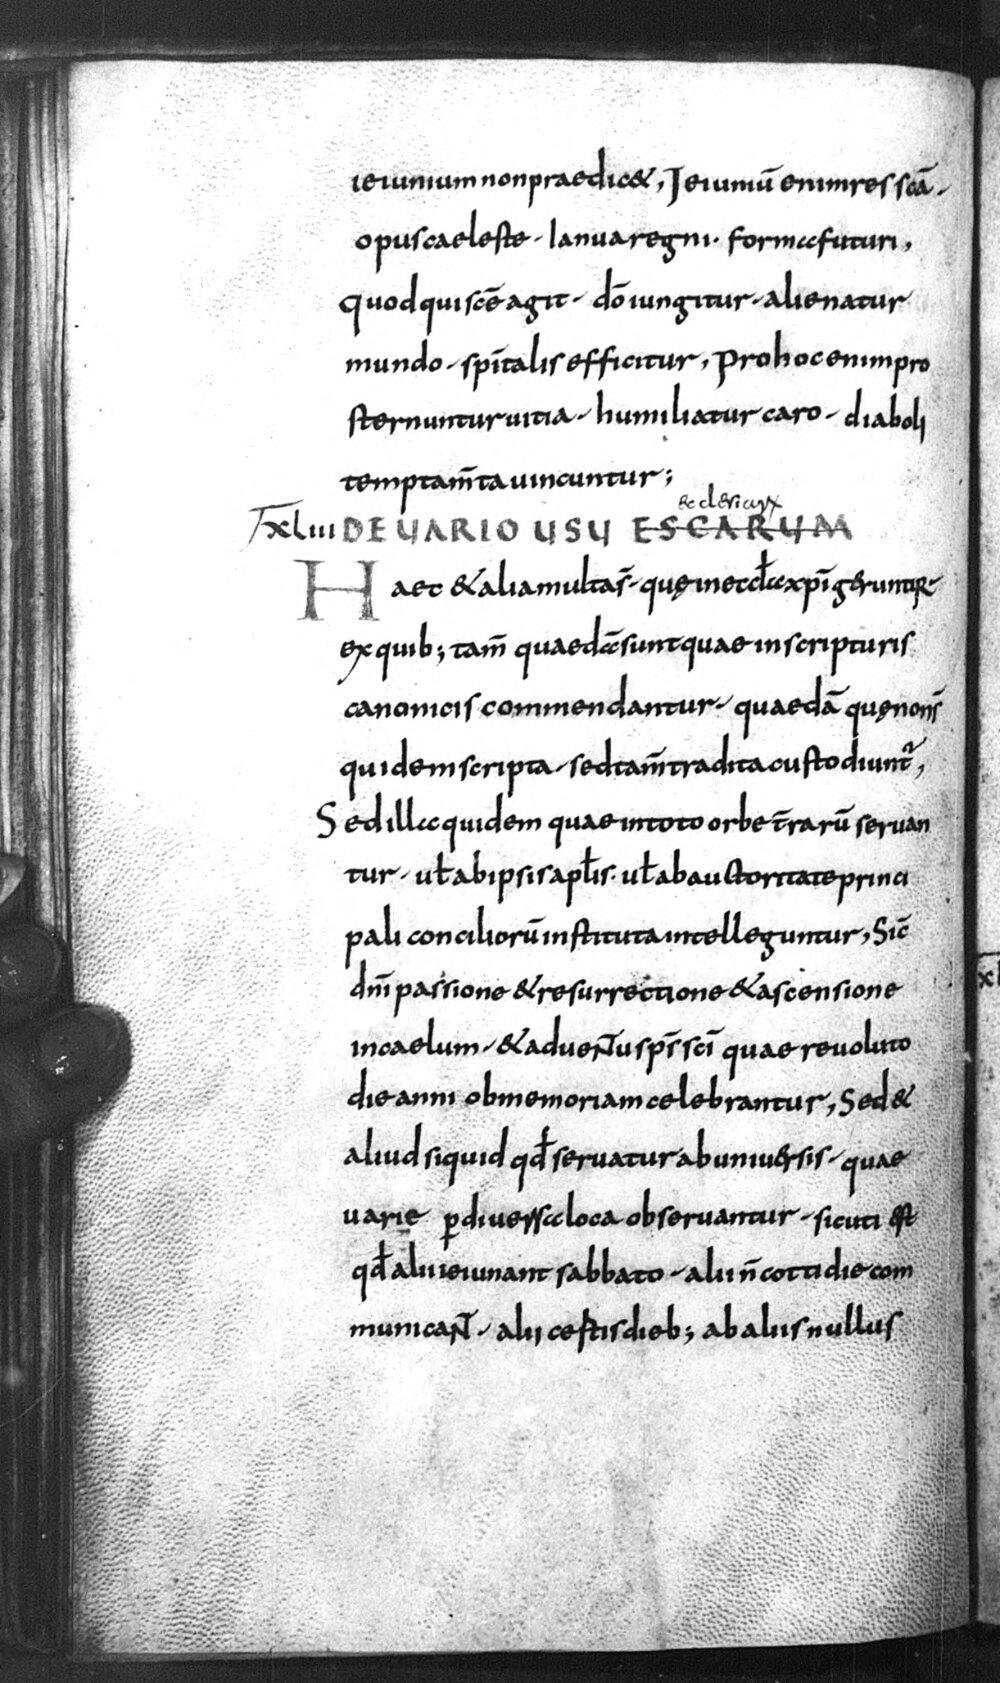 ieiunium non praedic&, Ieiuniū enim res scā.
opus caeleste. Ianua regni. forma futuri,
Quod qui scē agit. dō iungitur. alienatur
mundo. spīṫalis efficitur, Pro hoc enim pro
sternuntur uitia. humiliatur caro. diaboli
temptam̄ta uincuntur;
ecclesiarum
XLIII DE UARIO USU ESCARUM
Haec & alia multa s̄. quę in eccl̄a xp̄i geruntur
ex quib; tam̄ quaedā sunt quae in scripturis
canonicis commendantur. quaedā quę non s̄
quidem scripta. sed tam̄ tradita custodiunt̄,
Sed illa quidem quae in toto orbe t̄rarū seruan
tur. ul̄ ab ipsis apl̄is. ul̄ ab auctoritate princi
pali conciliorū instituta intelleguntur, Sic̄
dn̄i passione & resurrectione & ascensione
in caelum. & aduentu sp̄s sc̄i quae reuoluto
die anni ob memoriam celebrantur, Sed &
aliud siquid qd̄ seruatur ab uniuersis. quae
uarie ꝑ diuersa loca obseruantur. sicuti est
qd̄ alii ieiunant sabbato. alii n̄ cottidie com
municant. alii certis dieb; ab aliis nullus
xl